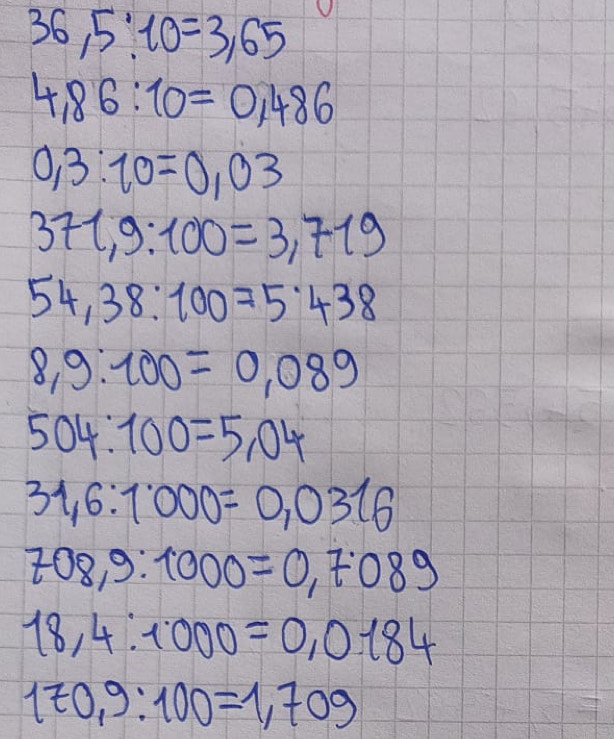 36,5:10=3,65
4,86:10=0,486
0,3:10=0,03
371,9:100=3,719
54,38:100=5·438
8,9:100=0,089
504:100=5,04
31,6:1·000=0,0316
708,9:1·000=0,7·089
18,4:1·000=0,0184
170,9:100=1,709